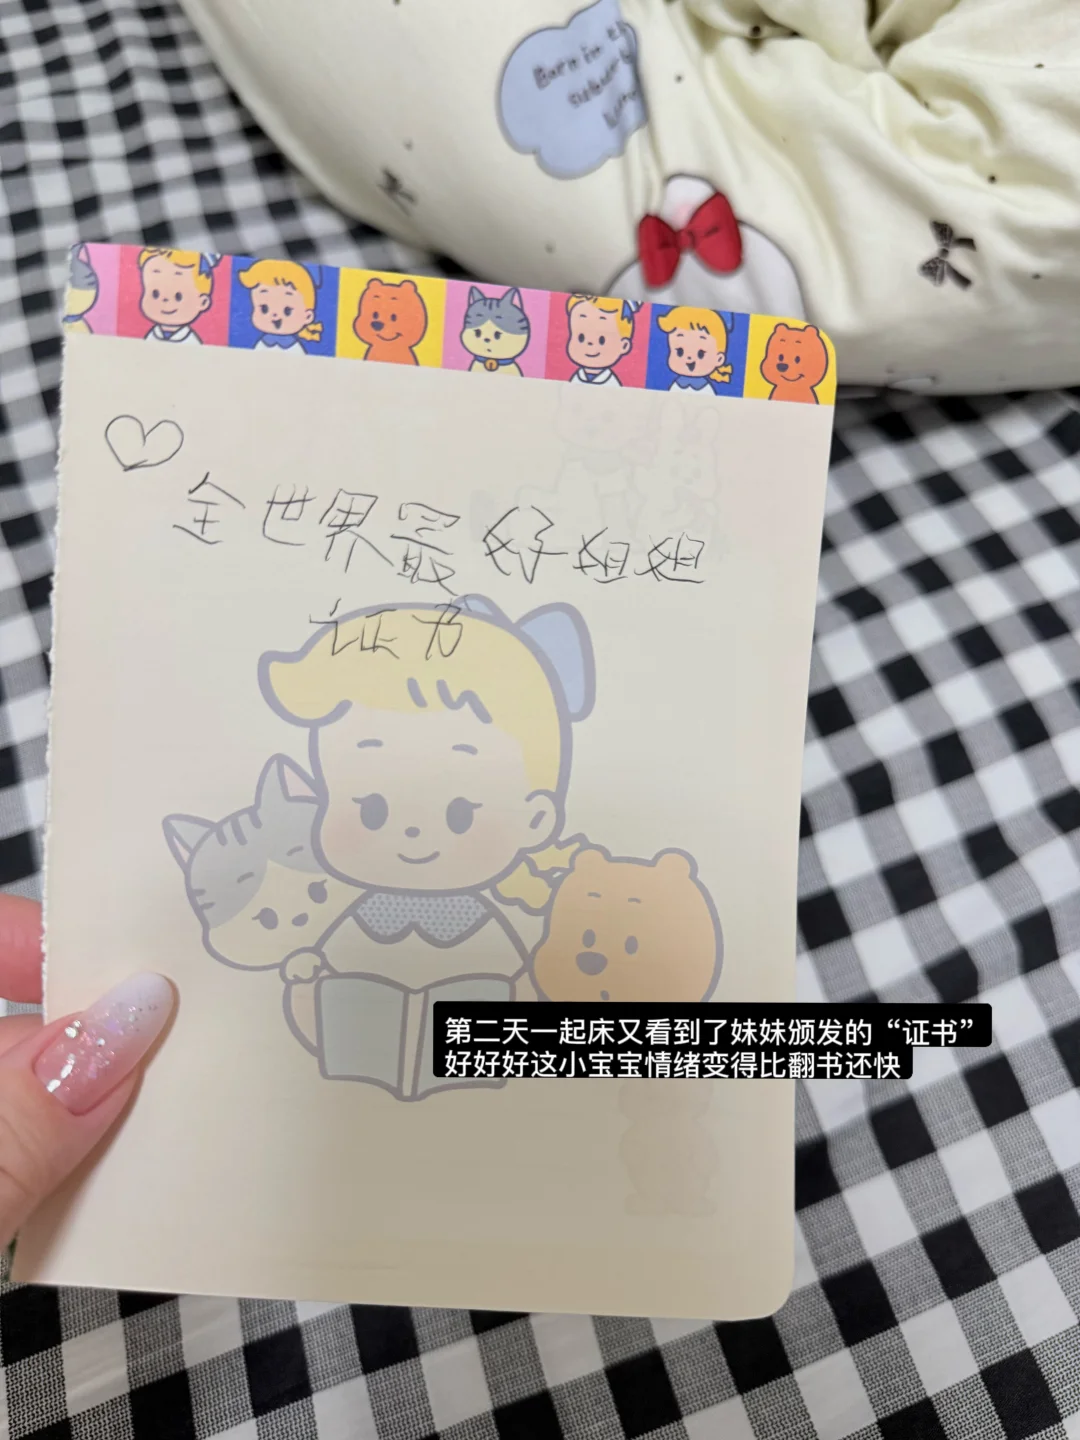 Born in
全世界最好姐姐
证书
第二天一起床又看到了妹妹颁发的“证书”
好好好这小宝宝情绪变得比翻书还快